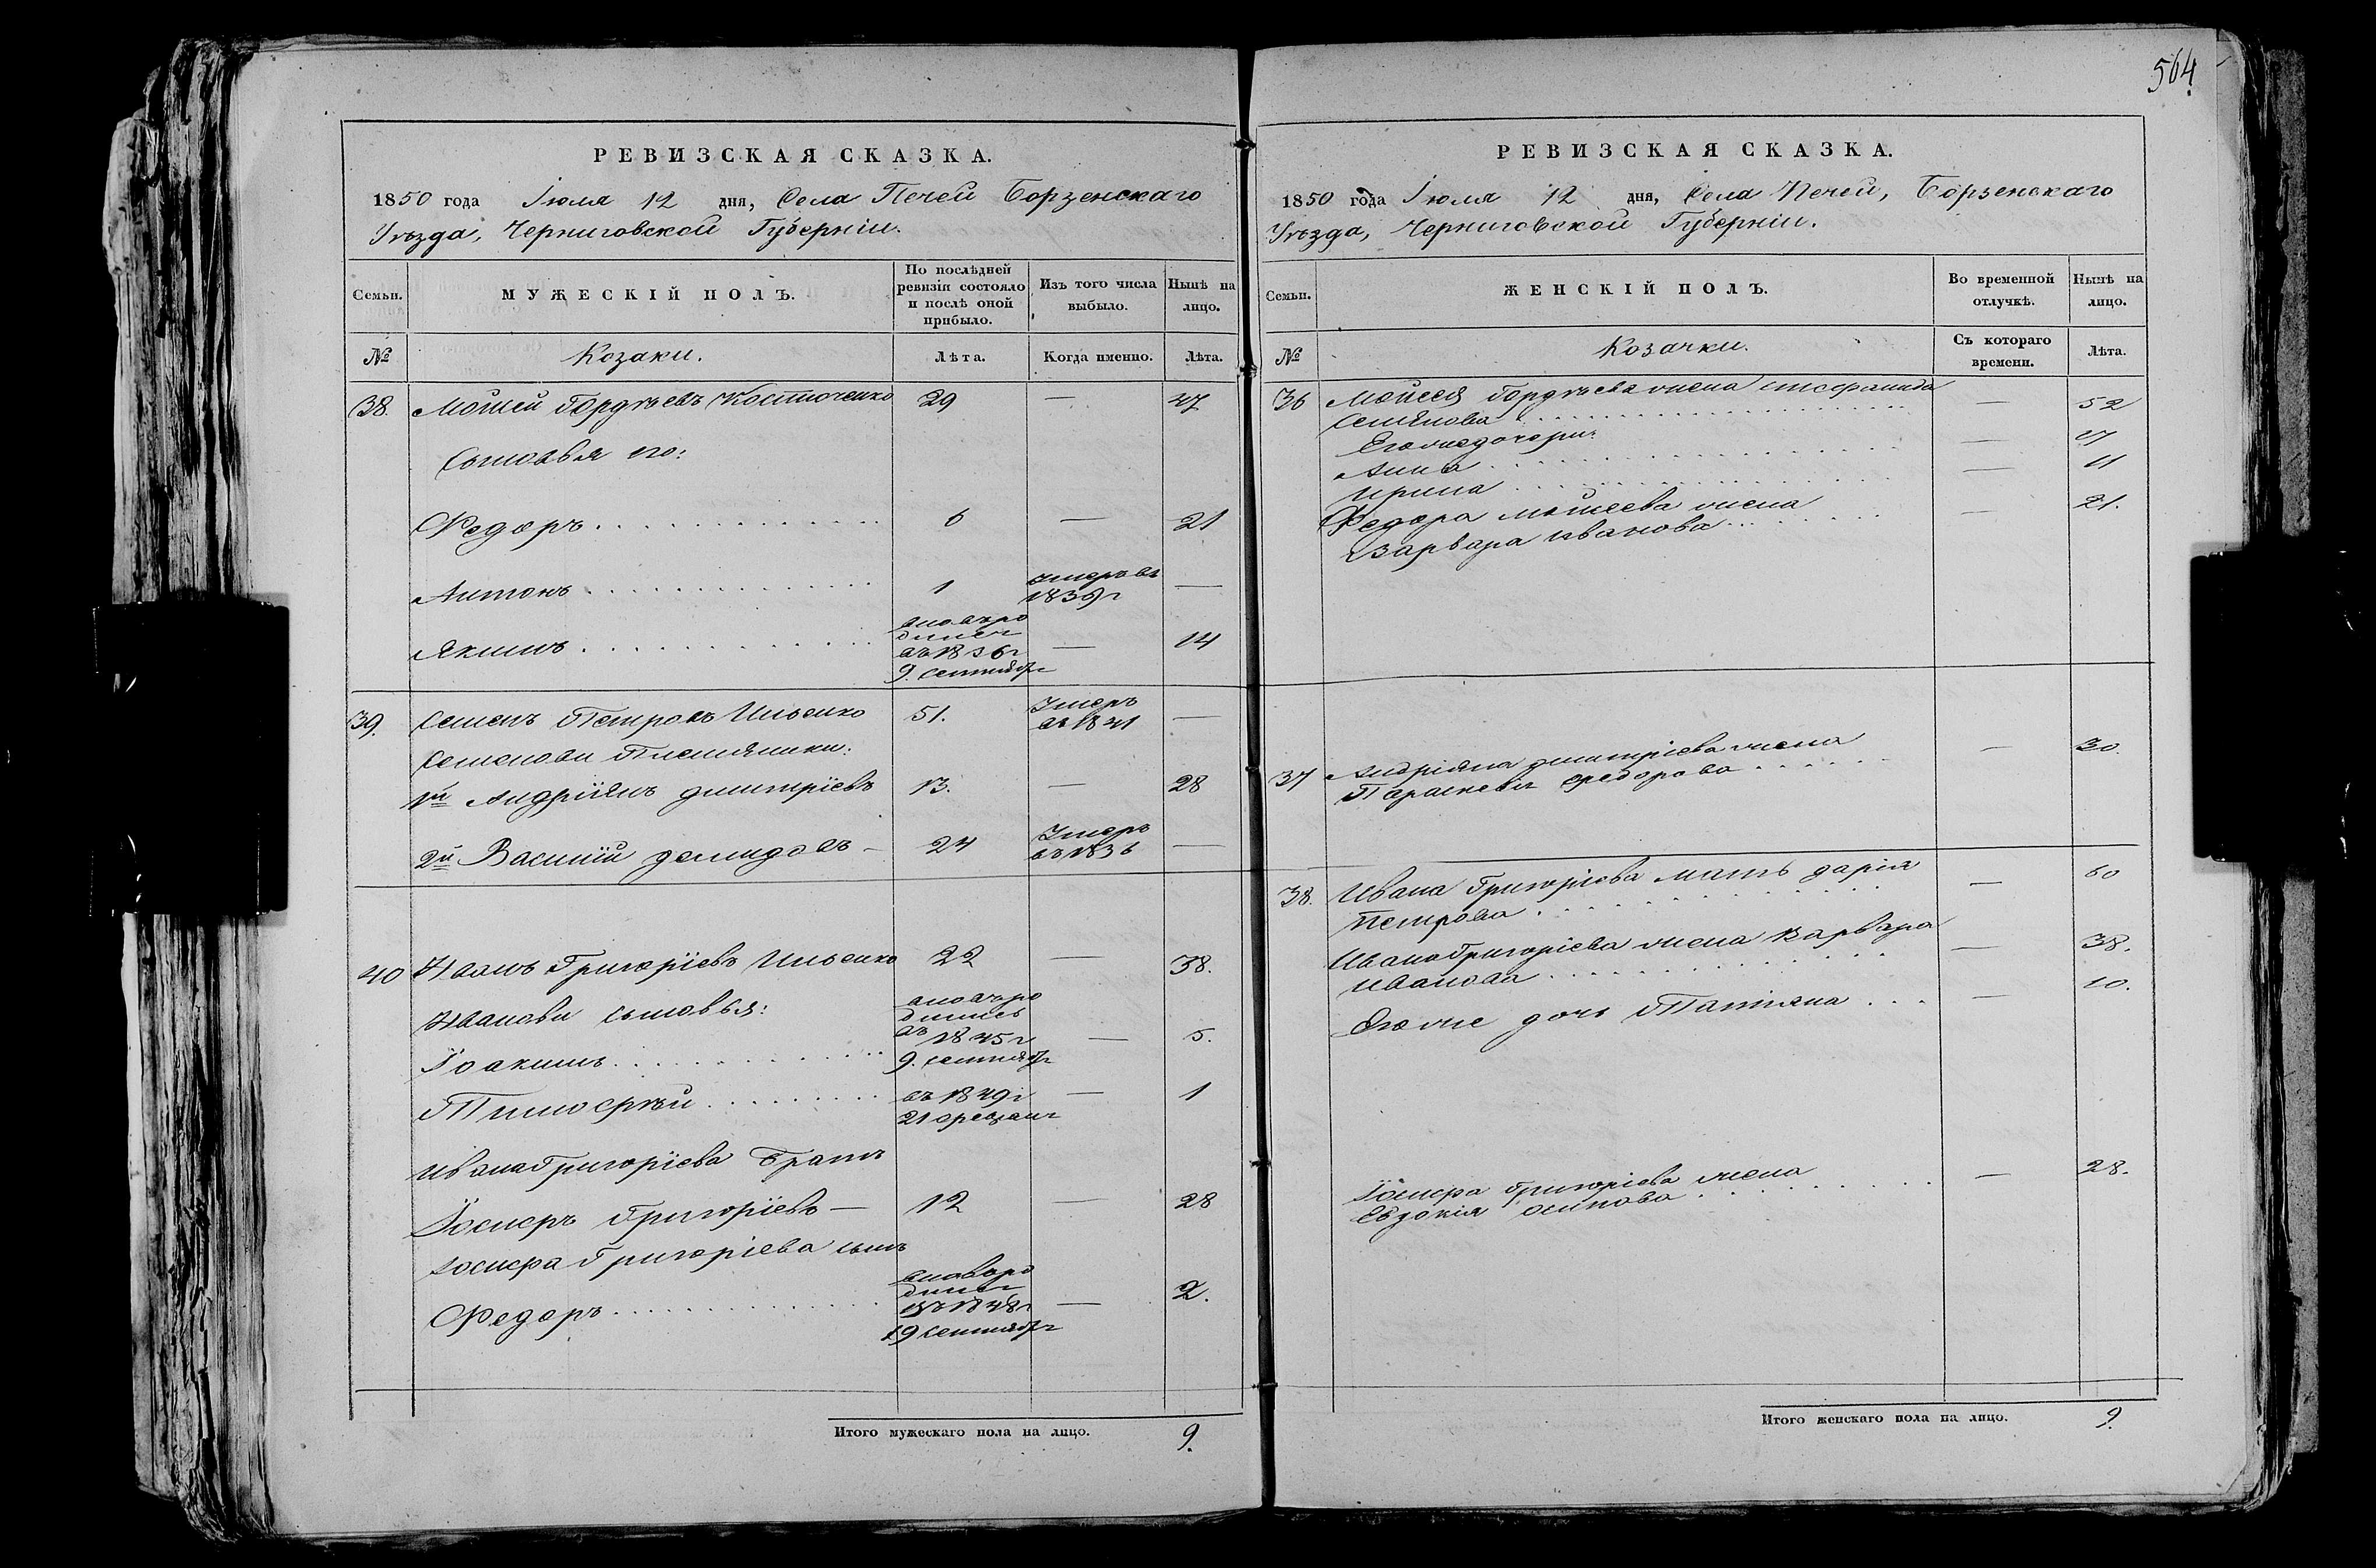 РЕВИЗСКАЯ СКАЗКА.
1850 года Іюля 12 дня, Села Печей Борзенскаго
Уѣзда, Черниговской Губерніи.
Семьи. МУЖЕСКІЙ ПОЛЪ. По послѣдней ревизіи состояло и послѣ оной прибыло. Изъ того числа выбыло. Нынѣ на лицо.
№ Козаки. Лѣта. Когда именно. Лѣта.
38. Мойсей Гордѣевъ Костюченко 29 — 47
Сыновья его:
Федоръ 6 — 21
Антонъ 1 Умеръ въ 1839 г —
Якимъ вновь родился въ 1836 г 9. Сентября — 14
39. Семенъ Петровъ Ильенко 51. Умеръ въ 1841 —
Семенови Племяники:
1й Андріянъ Дмитріевъ 13. — 28
2й Василій Демидовъ — 24 Умеръ въ 1836 —
40 Иванъ Григоріевъ Ильенко 22 — 38.
Иванови сыновья:
Іоакимъ вновь родились въ 1845 г 9. Сентября — 5.
Тимофѣй въ 1849 г 21 февраля — 1
Ивана Григоріева братъ
Іосифъ Григоріевъ — 12 — 28
Іосифа Григоріева сынъ
Федоръ вновь родился въ 1848 г 19 Сентября — 2.
Итого мужескаго пола на лицо. 9.
564
РЕВИЗСКАЯ СКАЗКА.
1850 года Іюля 12 дня, Села Печей, Борзенскаго
Уѣзда, Черниговской Губерніи.
Семьи. ЖЕНСКІЙ ПОЛЪ. Во временной отлучкѣ. Нынѣ на лицо.
№ Козачки. Съ котораго времени. Лѣта.
36 Мойсея Гордѣева жена Стефанида
Семѣнова — 52
Его же дочери:
Анна — 17
Ирина — 11
Федора Мойсеева жена
Варвара Иванова — 21.
37 Андріяна Дмитріева жена
Параскевія Федорова — 30.
38. Ивана Григоріева мать Дарія
Петрова — 60
Ивана Григоріева жена Варвара
Иванова — 38.
Его же дочь Татіяна — 10.
Іосифа Григоріева жена
Евдокія Осипова — 28.
Итого женскаго пола на лицо. 9.